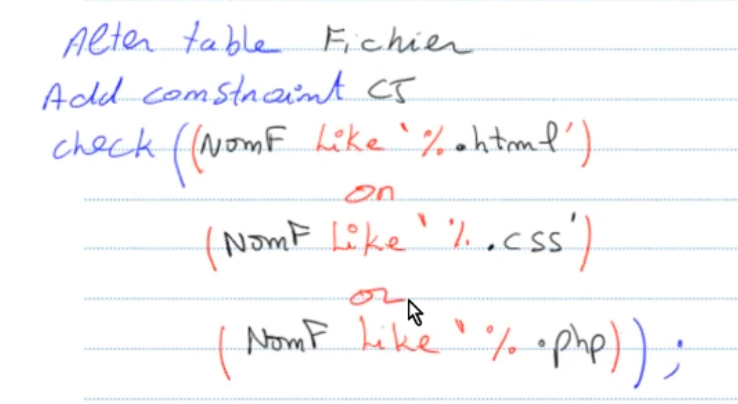 Alter table Fichier
Add constraint CJ
check ((NomF Like '%.html')
or
(NomF Like '%.css')
or
(NomF Like '%.php));